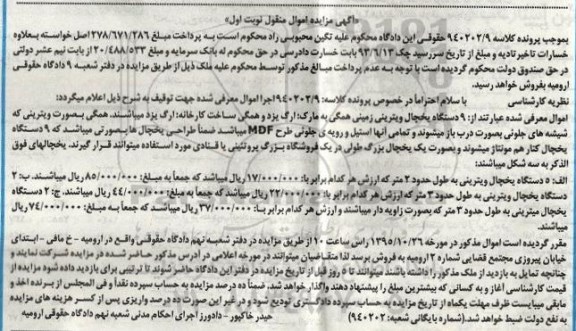 «آگهی مزایده اموال منقول نوبت اول»
بموجب پرونده کلاسه ۹۴۰۲۰۲/۹ حقوقی این دادگاه محکوم علیه تکین محبوبی راد محکوم است به پرداخت مبلغ ۲۷۸/۶۷۱/۲۸۶ اصل خواسته بعلاوه
خسارات تاخیر تادیه و مبلغ از تاریخ سررسید چک ۹۳/۶/۱۳ بابت خسارت دادرسی در حق محکوم له بانک سرمایه و مبلغ ۲۰/۴۸۸/۵۳۳ از بابت نیم عشر دولتی
در حق صندوق دولت محکوم گردیده است با توجه به عدم پرداخت مبالغ مذکور توسط محکوم علیه ملک ذیل از طریق مزایده در دفتر شعبه ۹ دادگاه حقوقی
ارومیه بفروش خواهد رسید.
نظریه کارشناسی با سلام احتراماً در خصوص پرونده کلاسه: ۹۴۰۲۰۲/۹ اجرا اموال معرفی شده جهت توقیف به شرح ذیل اعلام میگردد:
اموال معرفی شده عبارتند از: ۹ دستگاه یخچال ویترینی زمینی همگی به مارک: ارگ یزد و همگی ساخت کارخانه: ارگ یزد میباشند. همگی بصورت ویترینی که
شیشه های جلونی بصورت درب باز میشوند و تمامی آنها استیل و رویه ی جلونی طرح MDF میباشد ضمناً طراحی یخچال ها بصورتی میباشد که ۹ دستگاه
یخچال کنار هم مونتاژ میشوند و بصورت یک یخچال بزرگ طولی در یک فروشگاه بزرگ پروتئینی یا قنادی مورد استفاده میتوانند قرار گیرند. یخچالهای فوق
الذکر به سه شکل میباشند:
الف: ۵ دستگاه یخچال ویترینی به طول حدود ۲ متر که ارزش هر کدام برابر با: ۱۷/۰۰۰/۰۰۰ ریال میباشد که جمعاً به مبلغ: ۸۵/۰۰۰/۰۰۰ ریال میباشند. ب: ۲
دستگاه یخچال ویترینی به طول حدود ۳ متر که ارزش هر کدام برابر با: ۲۲/۰۰۰/۰۰۰ ریال میباشد که جمعاً به مبلغ: ۴۴/۰۰۰/۰۰۰ ریال میباشند. ج: ۲ دستگاه
یخچال میترینی به طول حدود ۳ متر که بصورت زاویه دار میباشند و ارزش هر کدام برابر با: ۳۷/۰۰۰/۰۰۰ ریال میباشد که جمعاً به مبلغ: ۷۴/۰۰۰/۰۰۰ ریال
میباشند.
مقرر گردیده است اموال مذکور در مورخه ۱۳۹۵/۱۰/۲۶ راس ساعت ۱۰ از طریق مزایده در دفتر شعبه نهم دادگاه حقوقی واقع در ارومیه - خ مافی - ابتدای
خیابان پیروزی مجتمع قضایی شماره ۳ ارومیه به فروش برسد لذا متقاضیان میتوانند در مورخه اعلامی در آدرس مذکور حاضر شده در مزایده شرکت نمایند و
چنانچه تمایل به بازدید از ملک مذکور را داشته باشند میتوانند تا ۵ روز قبل از تاریخ مزایده در دفتر این دادگاه حاضر شوند تا ترتیبی برای بازدید داده شود مزایده از
قیمت کارشناسی آغاز و به کسانی که بیشترین مبلغ را پیشنهاد دهند واگذار خواهد شد. ضمناً ده درصد مزایده به حساب سپرده نقداً و فی المجلس از برنده اخذ و
مابقی میبایست ظرف مهلت یکماه از تاریخ مزایده به حساب سپرده دادگستری تودیع شود و در غیر این صورت ده درصد واریزی پس از کسر هزینه های مزایده
به نفع دولت ضبط خواهد شد. (شماره بایگانی شعبه: ۹۴۰۲۰۲) حیدر خاکپور - دادورز اجرای احکام مدنی شعبه نهم دادگاه حقوقی ارومیه